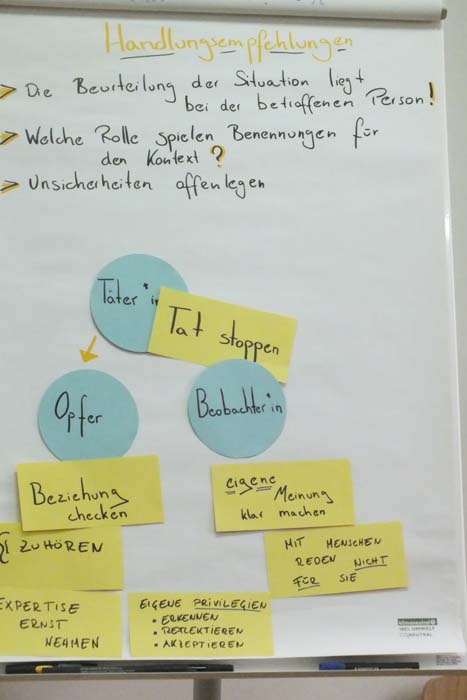 Handlungsempfehlungen
Die Beurteilung der Situation liegt
bei der betroffenen Person!
Welche Rolle spielen Benennungen für
den Kontext?
Unsicherheiten offenlegen
Täter*in
Tat stoppen
Opfer
Beobachter*in
Beziehung
checken
eigene Meinung
klar machen
ZUHÖREN
MIT MENSCHEN
REDEN NICHT
FÜR SIE
EXPERTISE
ERNST
NEHMEN
EIGENE PRIVILEGIEN
• ERKENNEN
• REFLEKTIEREN
• AKZEPTIEREN